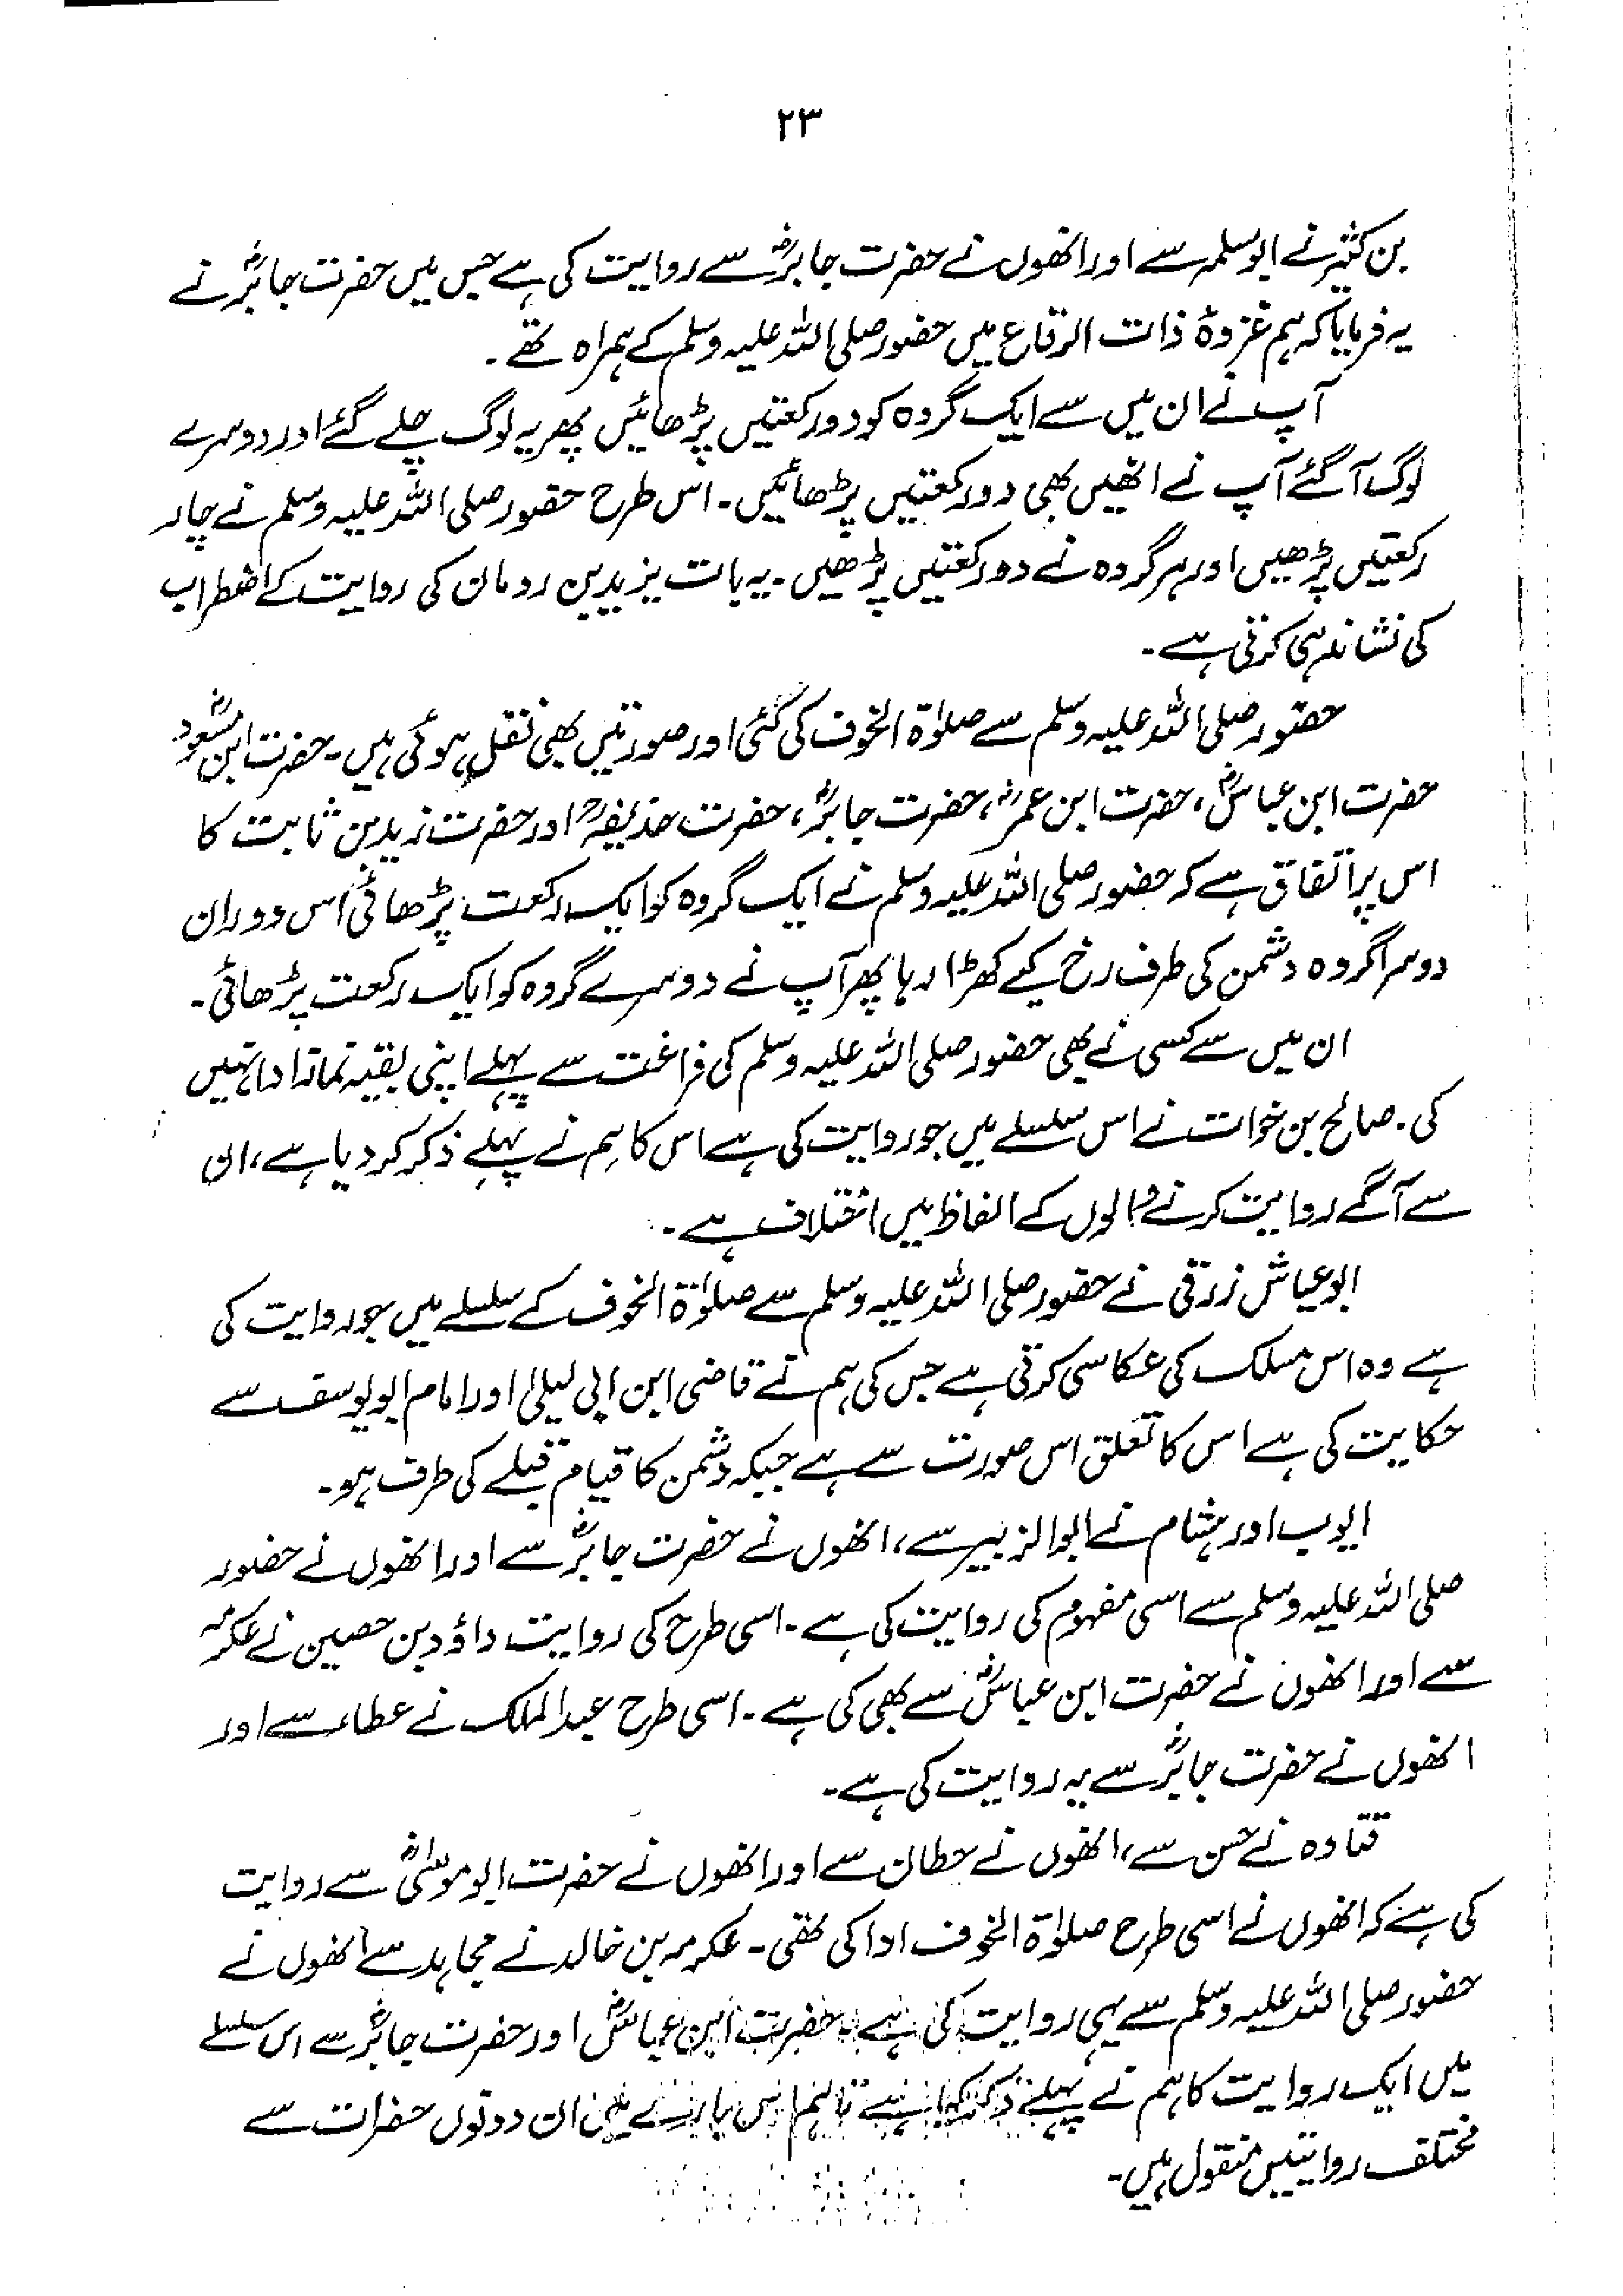 ۲۳
بن کثیر نے ابوسلمہ سے اور انھوں نے حضرت جابرؓ سے روایت کی ہے جس میں حضرت جابرؓ نے
یہ فرمایا کہ ہم غزوۂ ذات الرقاع میں حضور صلی اللہ علیہ وسلم کے ہمراہ تھے۔
آپ نے ان میں سے ایک گروہ کو دو رکعتیں پڑھائیں پھر یہ لوگ چلے گئے اور دوسرے
لوگ آ گئے آپ نے انھیں بھی دو رکعتیں پڑھائیں۔ اس طرح حضور صلی اللہ علیہ وسلم نے چار
رکعتیں پڑھیں اور ہر گروہ نے دو رکعتیں پڑھیں۔ یہ بات یزید بن رومان کی روایت کے اضطراب
کی نشاندہی کرتی ہے۔
حضور صلی اللہ علیہ وسلم سے صلوٰۃ الخوف کی کئی اور صورتیں بھی نقل ہوئی ہیں۔ حضرت ابن مسعودؓ
حضرت ابن عباسؓ، حضرت ابن عمرؓ، حضرت جابرؓ، حضرت حذیفہؓ اور حضرت زید بن ثابت کا
اس پر اتفاق ہے کہ حضور صلی اللہ علیہ وسلم نے ایک گروہ کو ایک رکعت پڑھائی اس دوران
دوسرا گروہ دشمن کی طرف رخ کیے کھڑا رہا پھر آپ نے دوسرے گروہ کو ایک رکعت پڑھائی۔
ان میں سے کسی نے بھی حضور صلی اللہ علیہ وسلم کی فراغت سے پہلے اپنی بقیہ نماز ادا نہیں
کی۔ صالح بن خوات نے اس سلسلے میں جو روایت کی ہے اس کا ہم نے پہلے ذکر کر دیا ہے، ان
سے آگے روایت کرنے والوں کے الفاظ میں اختلاف ہے۔
ابو عیاش زرقی نے حضور صلی اللہ علیہ وسلم سے صلوٰۃ الخوف کے سلسلے میں جو روایت کی
ہے وہ اس مسلک کی عکاسی کرتی ہے جس کی ہم نے قاضی ابن ابی لیلیٰ اور امام ابو یوسف سے
حکایت کی ہے اس کا تعلق اس صورت سے ہے جبکہ دشمن کا قیام قبلے کی طرف ہو۔
ایوب اور ہشام نے ابوالزبیر سے، انھوں نے حضرت جابرؓ سے اور انھوں نے حضور
صلی اللہ علیہ وسلم سے اسی مفہوم کی روایت کی ہے۔ اسی طرح کی روایت داؤد بن حصین نے عکرمہ
سے اور انھوں نے حضرت ابن عباسؓ سے بھی کی ہے۔ اسی طرح عبدالملک نے عطاء سے اور
انھوں نے حضرت جابرؓ سے یہ روایت کی ہے۔
قتادہ نے حسن سے، انھوں نے حطان سے اور انھوں نے حضرت ابو موسیٰؓ سے روایت
کی ہے کہ انھوں نے اسی طرح صلوٰۃ الخوف ادا کی تھی۔ عکرمہ بن خالد نے مجاہد سے انھوں نے
حضور صلی اللہ علیہ وسلم سے یہی روایت کی ہے۔ حضرت ابن عباسؓ اور حضرت جابرؓ سے اس سلسلے
میں ایک روایت کا ہم نے پہلے ذکر کیا ہے تاہم اس بارے میں ان دونوں حضرات سے
مختلف روایتیں منقول ہیں۔